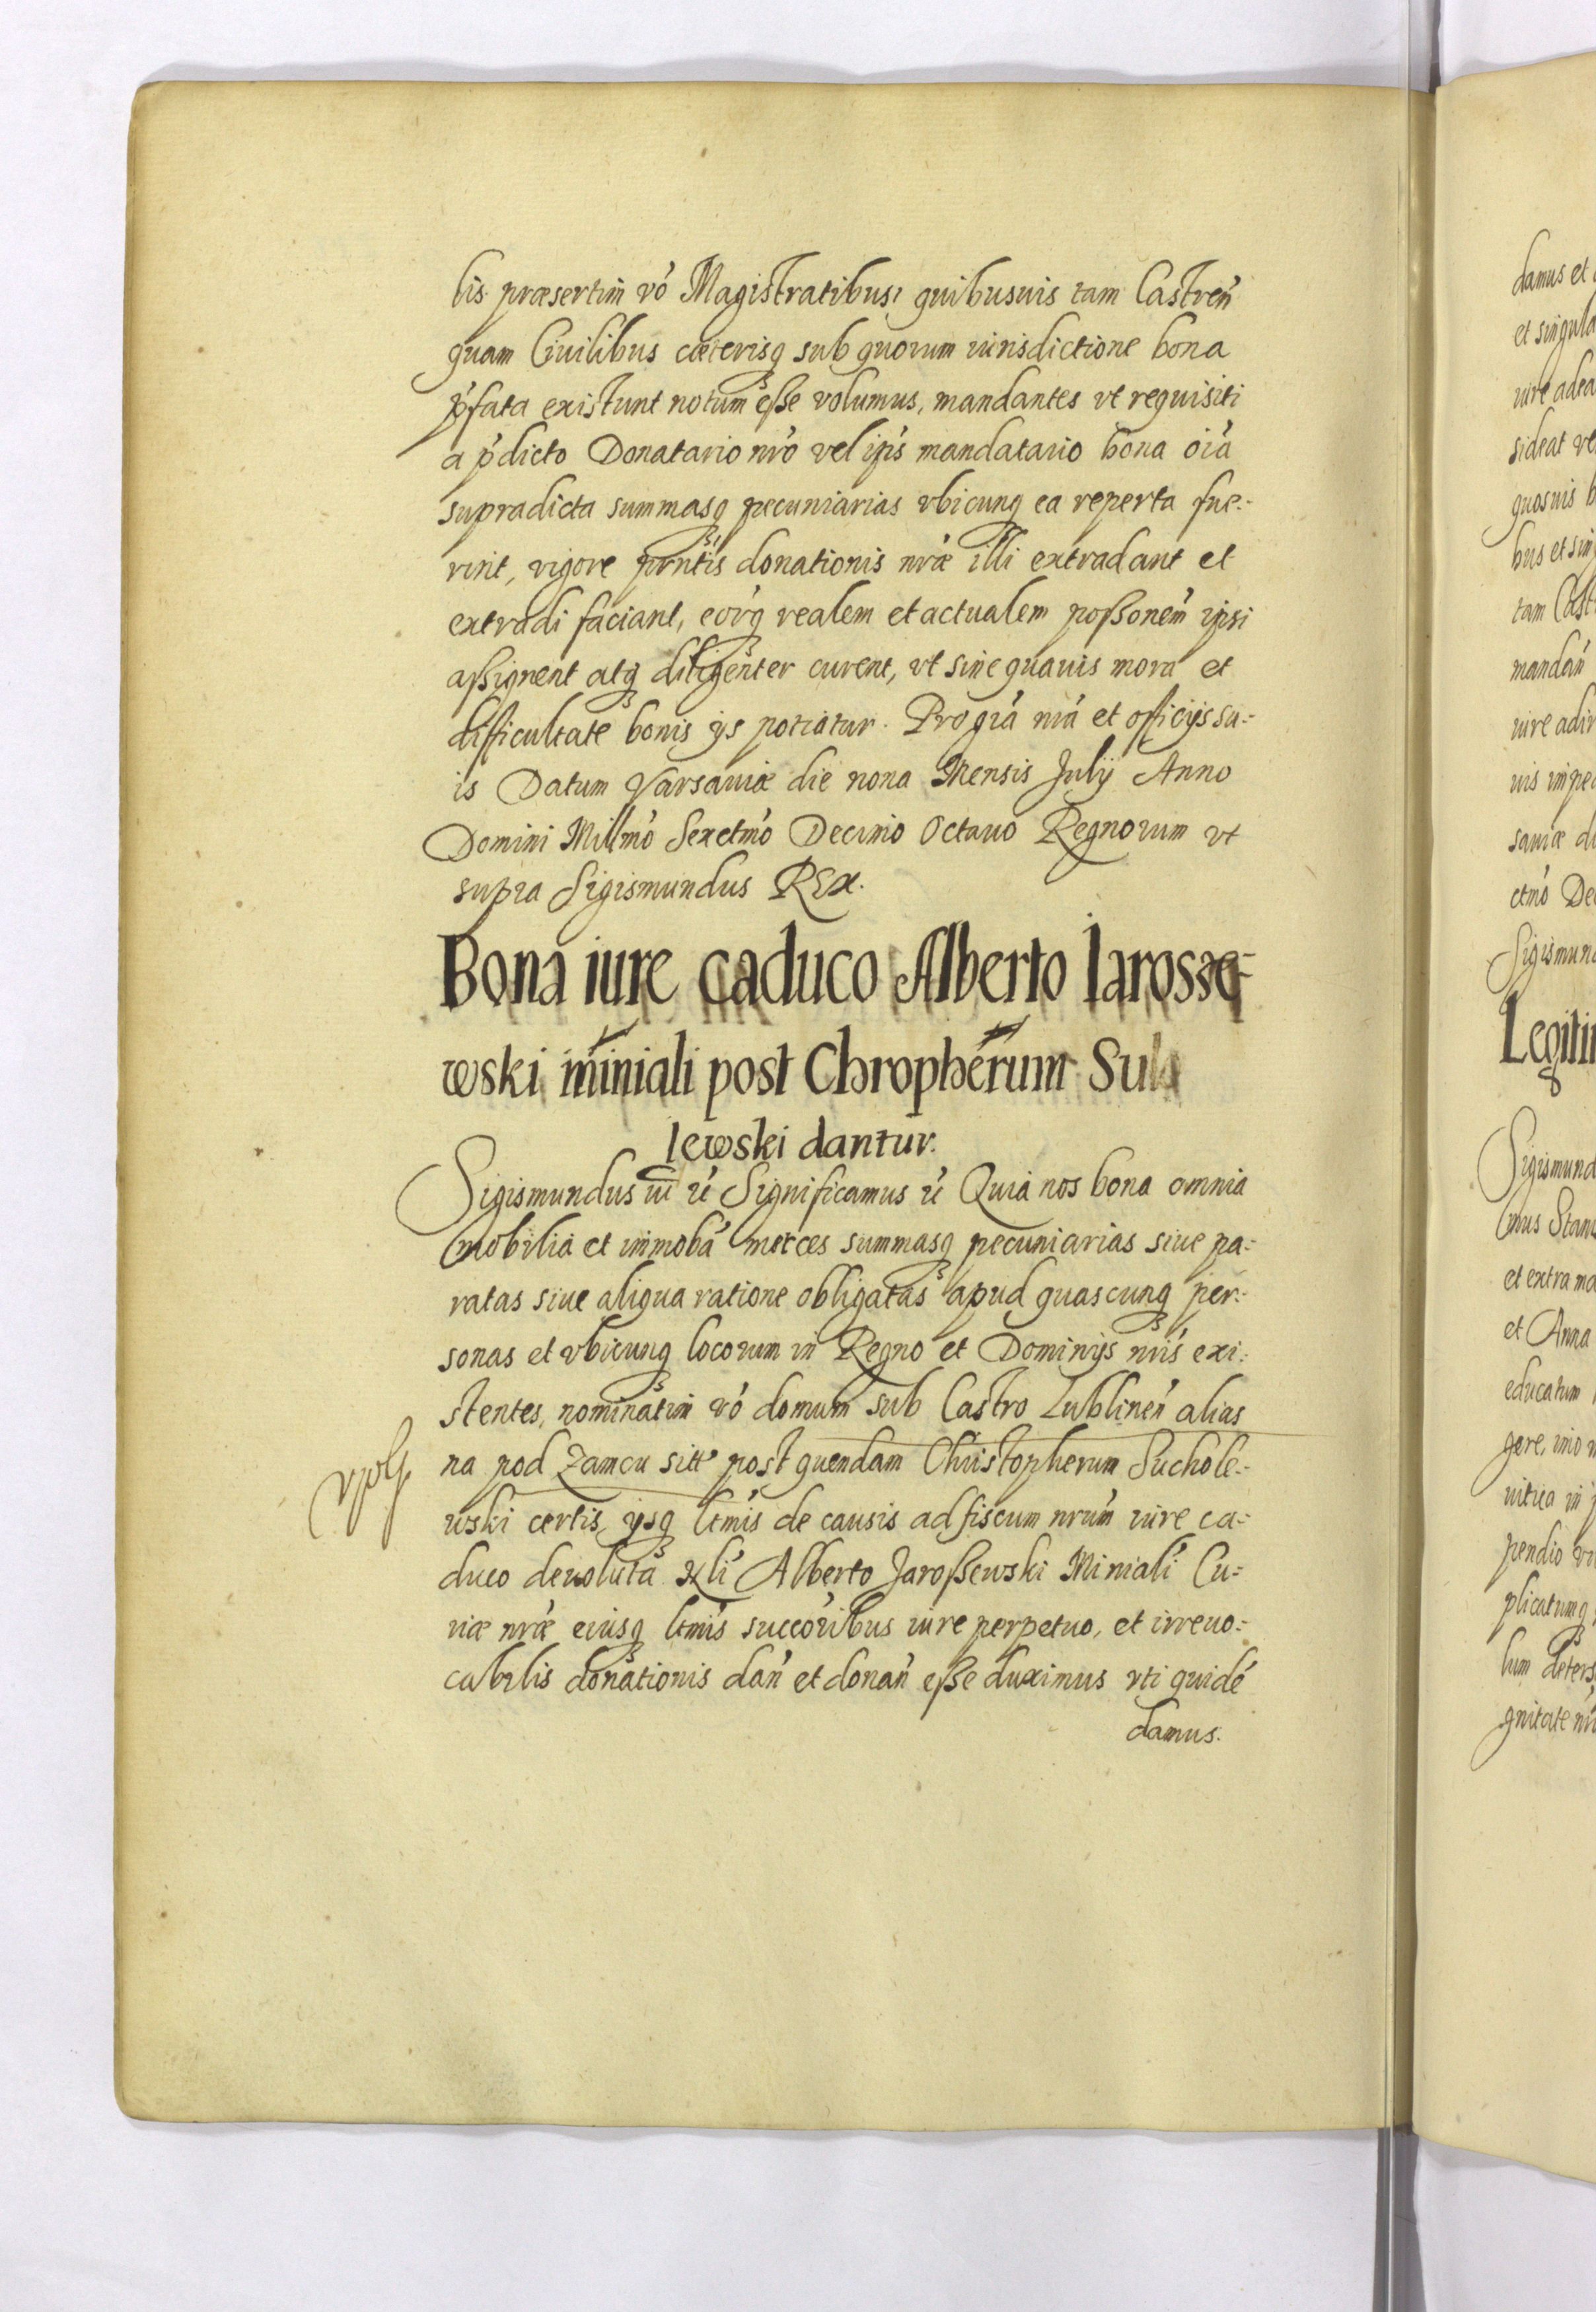 lis præsertim vó Magistratibus quibusuis tam Castreń
quam Ciuilibus cæterisq sub quorum iurisdictione bona
ṕfata existunt notum eße volumus, mandantes vt requisiti
a ṕdicto Donatario nŕo vel ip̄is mandatario bona oía
supradicta summasq pecuniarias vbicunq ea reperta fue-
rint, vigore pŕntis donationis nŕæ illi extradant et
extradi faciant, eoŕq realem et actualem poßoneḿ ipsi
aßignent atq diligenter curent, vt sine quauis mora et
difficultate bonis ijs potiatur. Pro gía nŕa et officijs su-
is Datum Varsauiæ die nona Mensis Julij Anno
Domini Millḿo Sexctḿo Decimo Octauo Regnorum vt
supra Sigismundus REX.
Bona iure caduco Alberto Iarosze-
wski miniali post Chropherum Sul
lewski dantur.
Sigismundus iii ić Significamus ić Quia nos bona omnia
mobilia et immobá merces summasq pecuniarias siue pa-
ratas siue aliqua ratione obligatas apud quascunq per-
sonas et vbicunq locorum in Regno et Dominijs nŕis exi-
stentes, nominatim vó domum sub Castro Lublineń alias
na pod Zamcu sitt post quendam Christopherum Suchole-
wski certis, ijsq ltmís de causis ad fiscum nrúm iure ca-
duco deuoluta Nlí Alberto Jaroßewski Miniali Cu-
riæ nŕæ eiusq ltmís succoŕibus iure perpetuo, et irreuo-
cabilis donationis dań et donań eße duximus vti quidé
damus.
damus et
et singula
iure adea
sideat ve
quosuis b
bus et sin
tam Cast
mandań
iure adir
uis impe
sauiæ di
ctmó De
Sigismun
Legiti
Sigismund
mus Stan
et extra ma
et Anna
educatum
gere, imo
uitia in
pendio
plicatumq
lum deters
gnitate